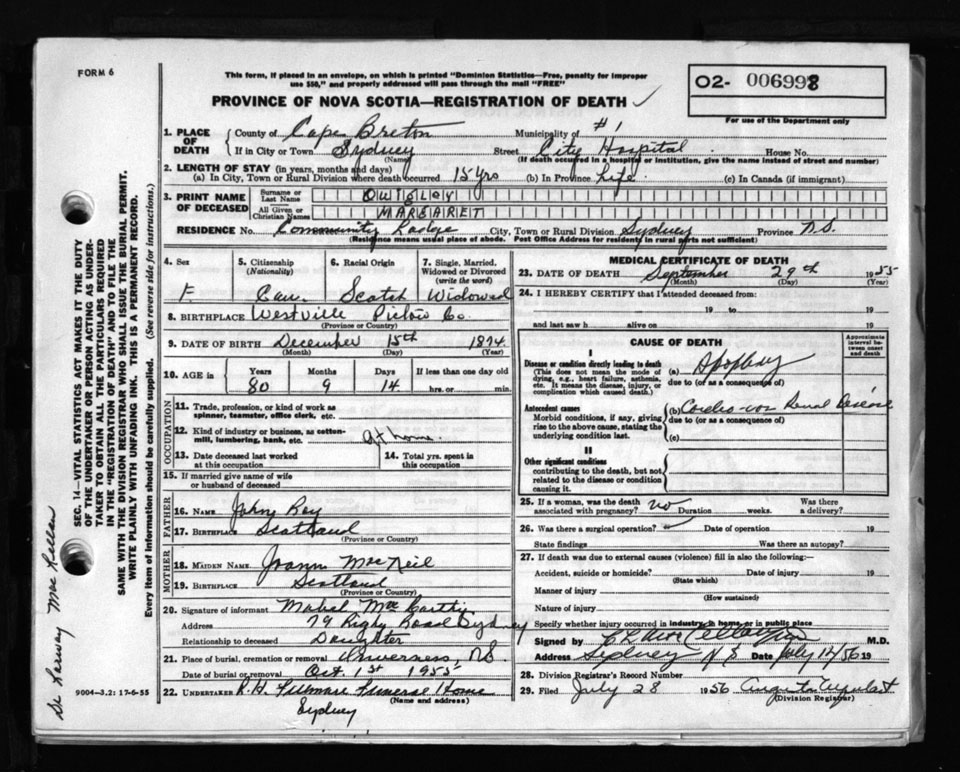 FORM 6
This form, if placed in an envelope, on which is printed "Dominion Statistics—Free, penalty for improper
use $50," and properly addressed will pass through the mail "FREE"
O2- 006998
For use of the Department only
PROVINCE OF NOVA SCOTIA—REGISTRATION OF DEATH
1. PLACE OF DEATH
County of Cape Breton Municipality of #1
If in City or Town Sydney Street City Hospital House No.
(Name) (If death occurred in a hospital or institution, give the name instead of street and number)
2. LENGTH OF STAY (in years, months and days)
(a) In City, Town or Rural Division where death occurred 15 yrs (b) In Province Life (c) In Canada (if immigrant)
3. PRINT NAME OF DECEASED
Surname or Last Name QUIGLEY
All Given or Christian Names MARGARET
RESIDENCE No. Community Lodge City, Town or Rural Division Sydney Province N.S.
(Residence means usual place of abode. Post Office Address for residents in rural parts not sufficient)
4. Sex F.
5. Citizenship (Nationality) Can.
6. Racial Origin Scotch
7. Single, Married, Widowed or Divorced (write the word) Widowed
8. BIRTHPLACE Westville Pictou Co.
(Province or Country)
9. DATE OF BIRTH December 15th 1874
(Month) (Day) (Year)
10. AGE in Years Months Days If less than one day old
80 9 14 hrs. or min.
OCCUPATION
11. Trade, profession, or kind of work as
spinner, teamster, office clerk, etc.
12. Kind of industry or business, as cotton-
mill, lumbering, bank, etc. At home.
13. Date deceased last worked
at this occupation
14. Total yrs. spent in
this occupation
15. If married give name of wife
or husband of deceased
FATHER
16. NAME John Roy
17. BIRTHPLACE Scotland
(Province or Country)
MOTHER
18. MAIDEN NAME Joann MacNeil
19. BIRTHPLACE Scotland
(Province or Country)
20. Signature of informant Mabel MacCarthy
Address 79 Rigby Road Sydney
Relationship to deceased Daughter
21. Place of burial, cremation or removal Inverness N.S.
Date of burial or removal Oct. 1st 1955
22. UNDERTAKER R.A. Fillmore Funeral Home
(Name and address)
Sydney
9004-3.2: 17-6-55
MEDICAL CERTIFICATE OF DEATH
23. DATE OF DEATH September 29th 1955
(Month) (Day) (Year)
24. I HEREBY CERTIFY that I attended deceased from:
19 to 19
and last saw h alive on 19
CAUSE OF DEATH
Approximate interval between onset and death
I
Disease or condition directly leading to death
(This does not mean the mode of
dying, e.g., heart failure, asthenia,
etc. It means the disease, injury, or
complication which caused death.)
(a) Apoplexy
due to (or as a consequence of)
Antecedent causes
Morbid conditions, if any, giving
rise to the above cause, stating the
underlying condition last.
(b) Cardio-vas Renal Disease
due to (or as a consequence of)
(c)
II
Other significant conditions
contributing to the death, but not
related to the disease or condition
causing it.
25. If a woman, was the death
associated with pregnancy? no Duration weeks. Was there
a delivery?
26. Was there a surgical operation? Date of operation 19
State findings Was there an autopsy?
27. If death was due to external causes (violence) fill in also the following:
Accident, suicide or homicide? Date of injury 19
(State which)
Manner of injury
(How sustained)
Nature of injury
Specify whether injury occurred in industry, in home, or in public place
Signed by M.D.
Address Sydney N S Date July 12/56 19
28. Division Registrar's Record Number
29. Filed July 28 1956
(Division Registrar)
SEC. 14—VITAL STATISTICS ACT MAKES IT THE DUTY
OF THE UNDERTAKER OR PERSON ACTING AS UNDER-
TAKER TO OBTAIN ALL THE PARTICULARS REQUIRED
IN THE "REGISTRATION OF DEATH" AND TO FILE THE
SAME WITH THE DIVISION REGISTRAR WHO SHALL ISSUE THE BURIAL PERMIT.
WRITE PLAINLY WITH UNFADING INK. THIS IS A PERMANENT RECORD.
Every item of information should be carefully supplied. (See reverse side for instructions.)